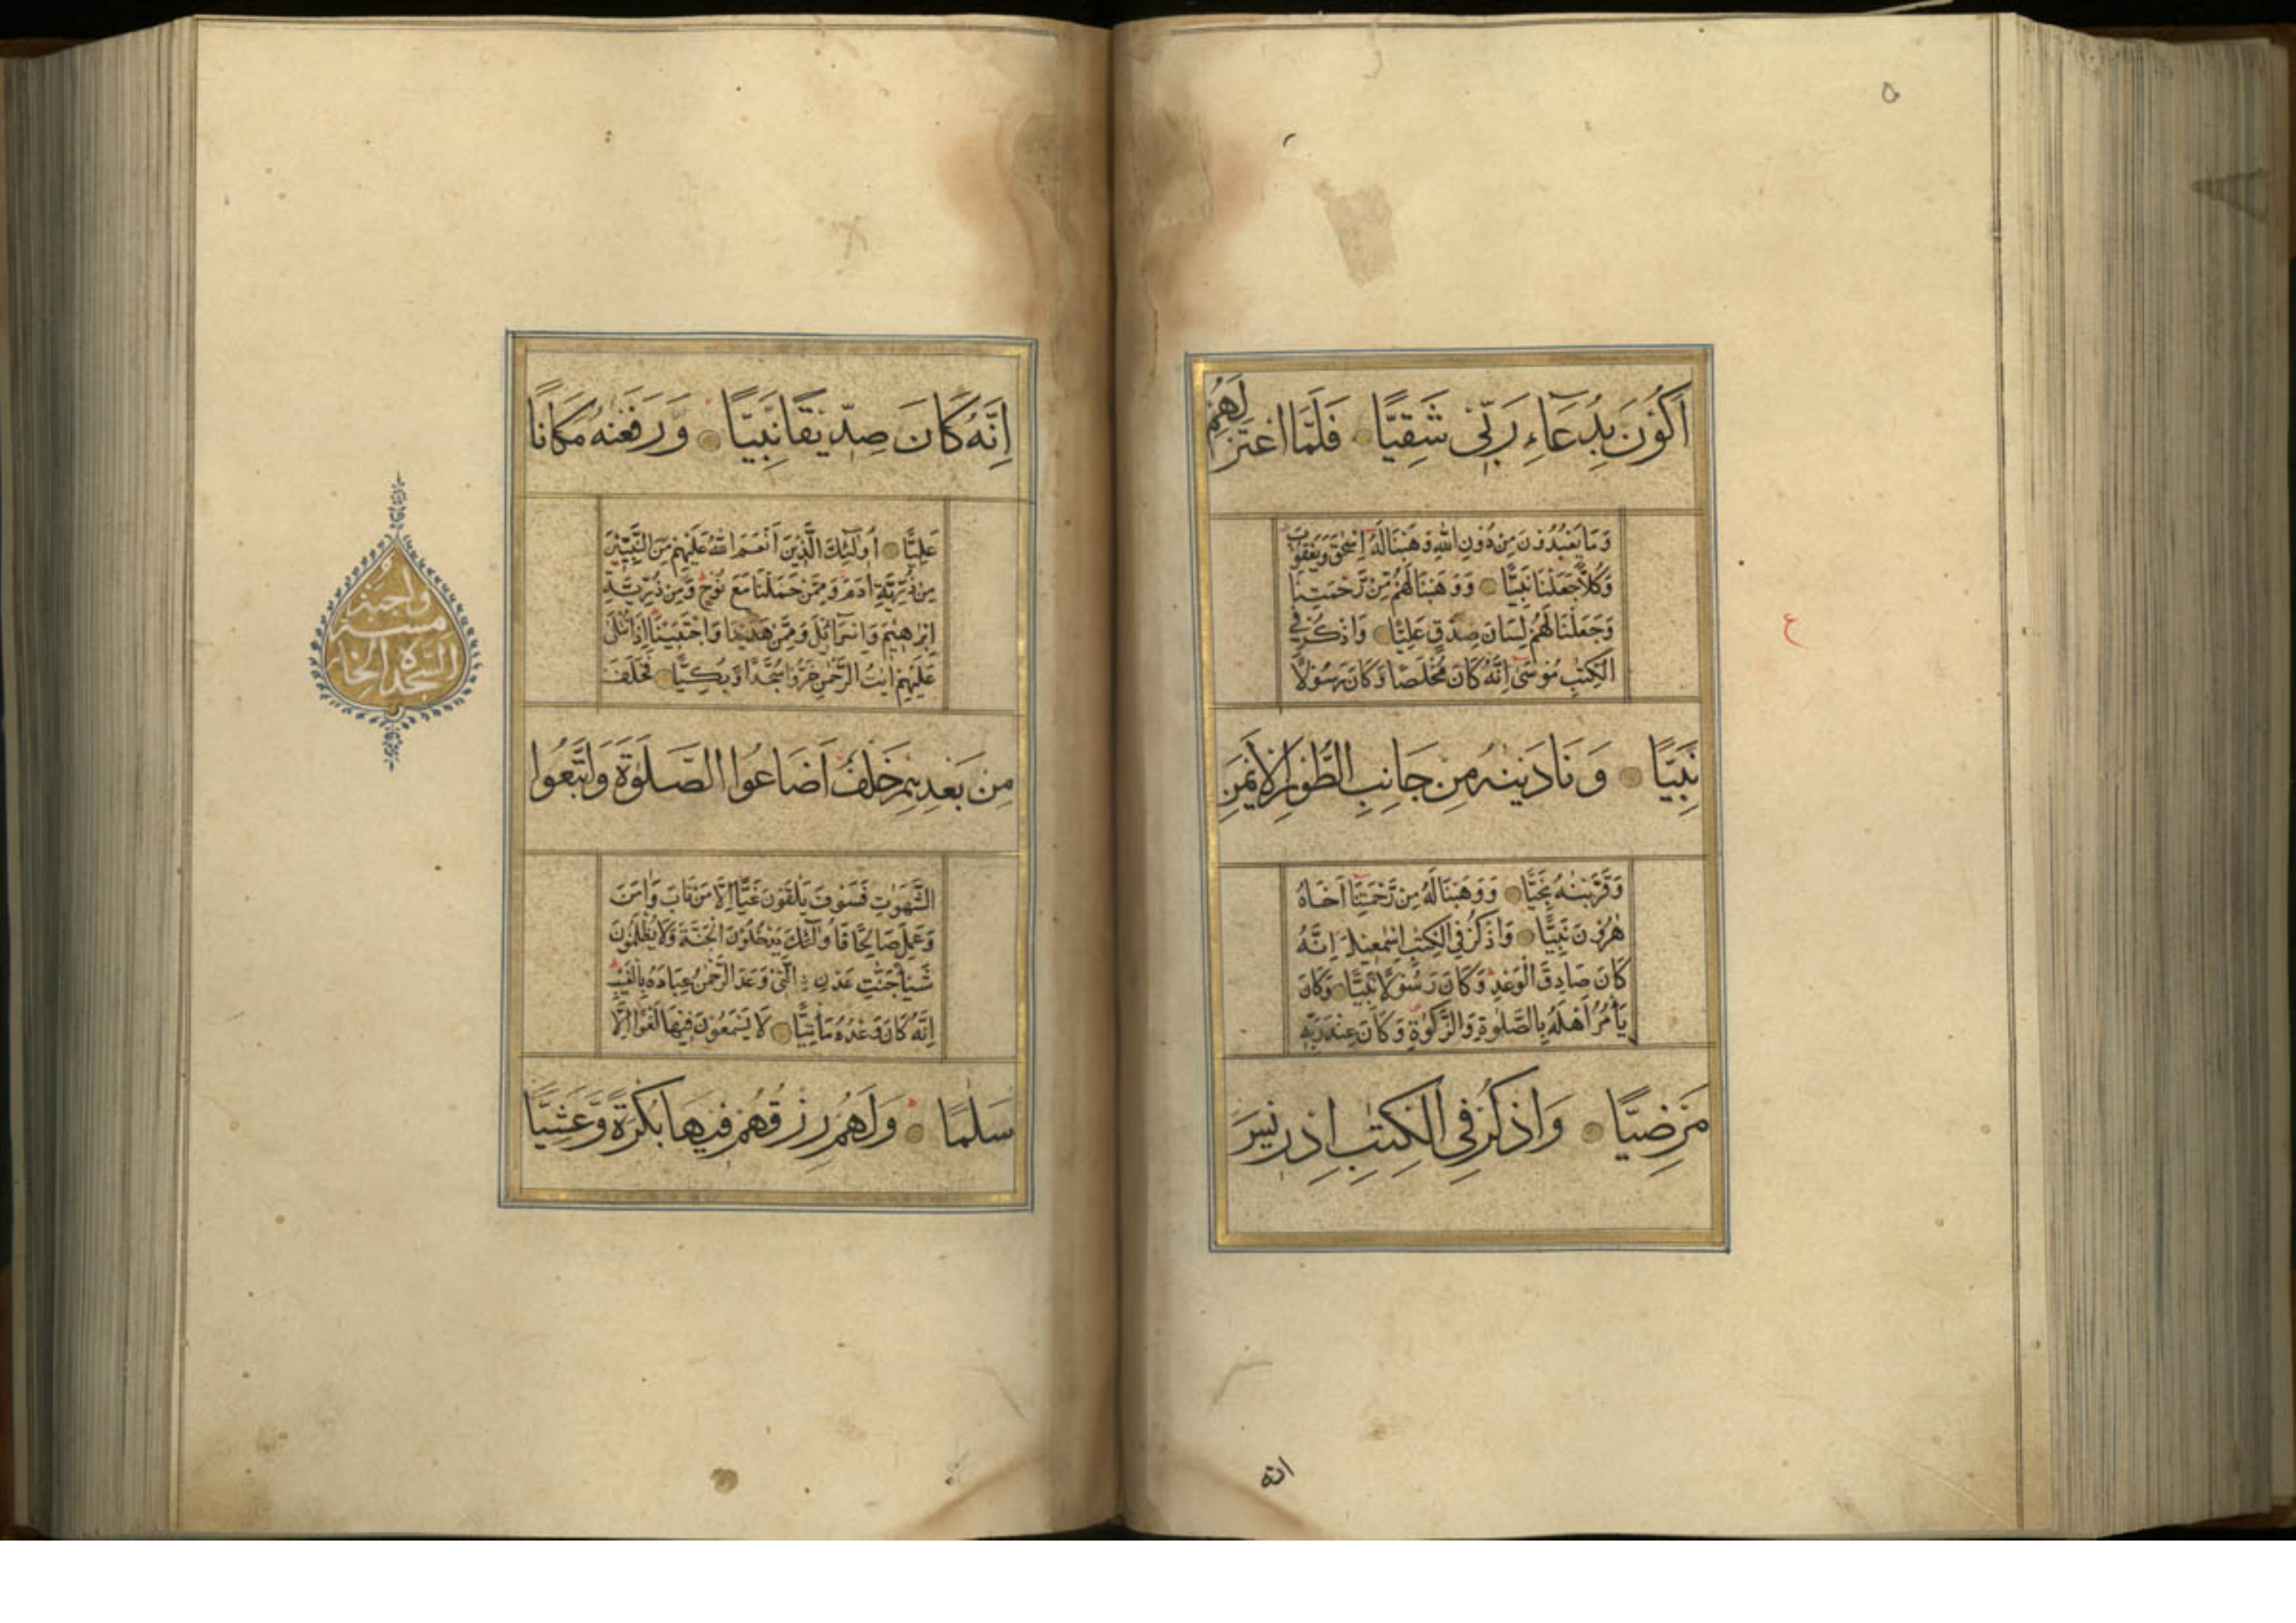 اَكُوْنَ بِدُعَآءِ رَبِّیْ شَقِیًّا فَلَمَّا اعْتَزَلَهُمْ
وَمَا یَعْبُدُوْنَ مِنْ دُوْنِ اللّٰهِ وَهَبْنَا لَهٗ اِسْحٰقَ وَیَعْقُوْبَ
وَكُلًّا جَعَلْنَا نَبِیًّا وَوَهَبْنَا لَهُمْ مِّنْ رَّحْمَتِنَا
وَجَعَلْنَا لَهُمْ لِسَانَ صِدْقٍ عَلِیًّا وَاذْكُرْ فِی
الْكِتٰبِ مُوْسٰی اِنَّهٗ كَانَ مُخْلَصًا وَّكَانَ رَسُوْلًا
نَّبِیًّا وَنَادَیْنٰهُ مِنْ جَانِبِ الطُّوْرِ الْاَیْمَنِ
وَقَرَّبْنٰهُ نَجِیًّا وَوَهَبْنَا لَهٗ مِنْ رَّحْمَتِنَا اَخَاهُ
هٰرُوْنَ نَبِیًّا وَاذْكُرْ فِی الْكِتٰبِ اِسْمٰعِیْلَ اِنَّهٗ
كَانَ صَادِقَ الْوَعْدِ وَكَانَ رَسُوْلًا نَّبِیًّا وَكَانَ
یَاْمُرُ اَهْلَهٗ بِالصَّلٰوةِ وَالزَّكٰوةِ وَكَانَ عِنْدَ رَبِّهٖ
مَرْضِیًّا وَاذْكُرْ فِی الْكِتٰبِ اِدْرِیْسَ
انه
ع
۵
اِنَّهٗ كَانَ صِدِّیْقًا نَّبِیًّا وَّرَفَعْنٰهُ مَكَانًا
عَلِیًّا اُولٰٓئِكَ الَّذِیْنَ اَنْعَمَ اللّٰهُ عَلَیْهِمْ مِّنَ النَّبِیّٖنَ
مِنْ ذُرِّیَّةِ اٰدَمَ وَمِمَّنْ حَمَلْنَا مَعَ نُوْحٍ وَّمِنْ ذُرِّیَّةِ
اِبْرٰهِیْمَ وَاِسْرَآئِیْلَ وَمِمَّنْ هَدَیْنَا وَاجْتَبَیْنَا اِذَا تُتْلٰی
عَلَیْهِمْ اٰیٰتُ الرَّحْمٰنِ خَرُّوْا سُجَّدًا وَّبُكِیًّا فَخَلَفَ
مِنْ بَعْدِهِمْ خَلْفٌ اَضَاعُوا الصَّلٰوةَ وَاتَّبَعُوا
الشَّهَوٰتِ فَسَوْفَ یَلْقَوْنَ غَیًّا اِلَّا مَنْ تَابَ وَاٰمَنَ
وَعَمِلَ صَالِحًا فَاُولٰٓئِكَ یَدْخُلُوْنَ الْجَنَّةَ وَلَا یُظْلَمُوْنَ
شَیْئًا جَنّٰتِ عَدْنِ الَّتِیْ وَعَدَ الرَّحْمٰنُ عِبَادَهٗ بِالْغَیْبِ
اِنَّهٗ كَانَ وَعْدُهٗ مَاْتِیًّا لَا یَسْمَعُوْنَ فِیْهَا لَغْوًا اِلَّا
سَلٰمًا وَلَهُمْ رِزْقُهُمْ فِیْهَا بُكْرَةً وَّعَشِیًّا
واجبة
السجدة